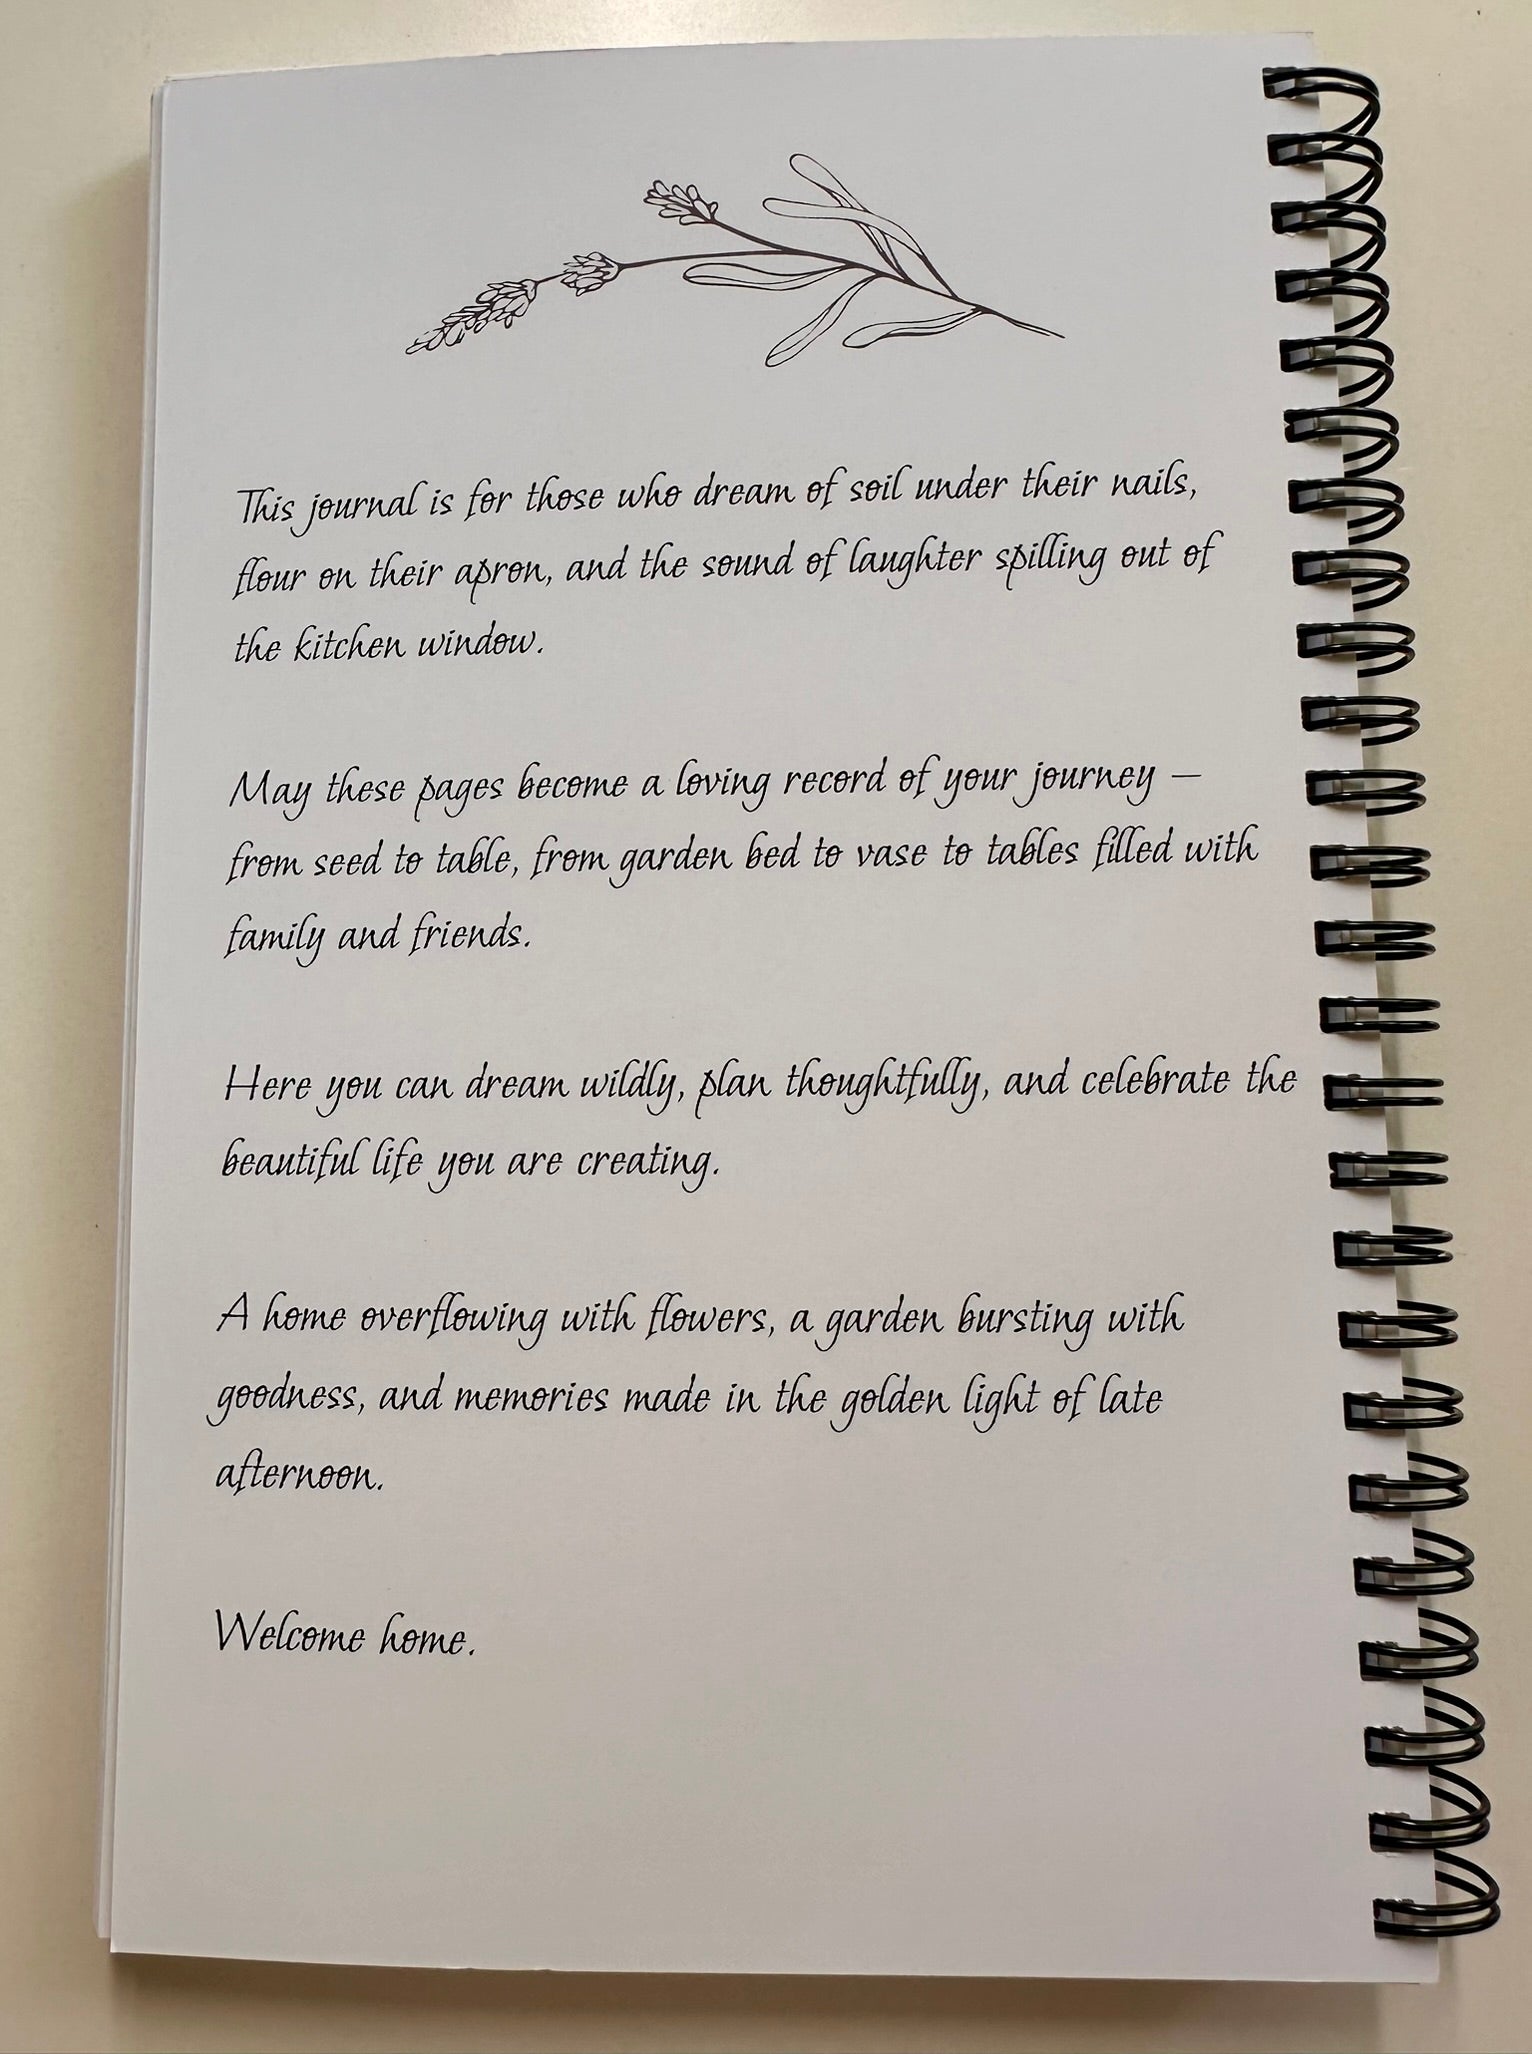 This journal is for those who dream of soil under their nails,
flour on their apron, and the sound of laughter spilling out of
the kitchen window.
May these pages become a loving record of your journey —
from seed to table, from garden bed to vase to tables filled with
family and friends.
Here you can dream wildly, plan thoughtfully, and celebrate the
beautiful life you are creating.
A home overflowing with flowers, a garden bursting with
goodness, and memories made in the golden light of late
afternoon.
Welcome home.